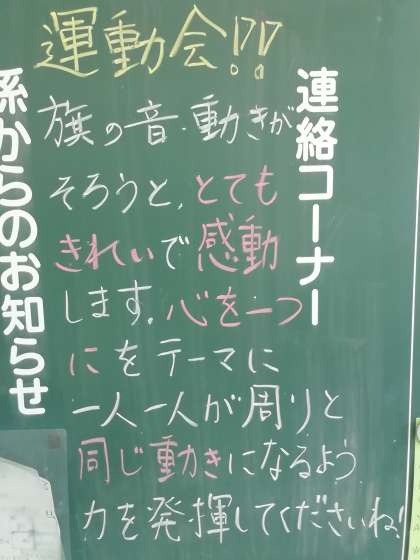 運動会!!
連絡コーナー
旗の音・動きが
そろうと、とても
きれいで感動
します。心を一つ
にをテーマに
一人一人が周りと
同じ動きになるよう
力を発揮してくださいね!
係からのお知らせ